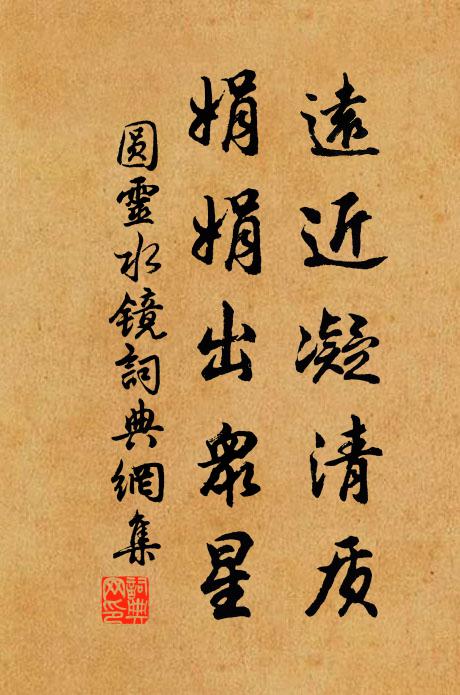 遠近凝清质
娟娟出衆星
圓靈水镜詞典網集
詞典网印